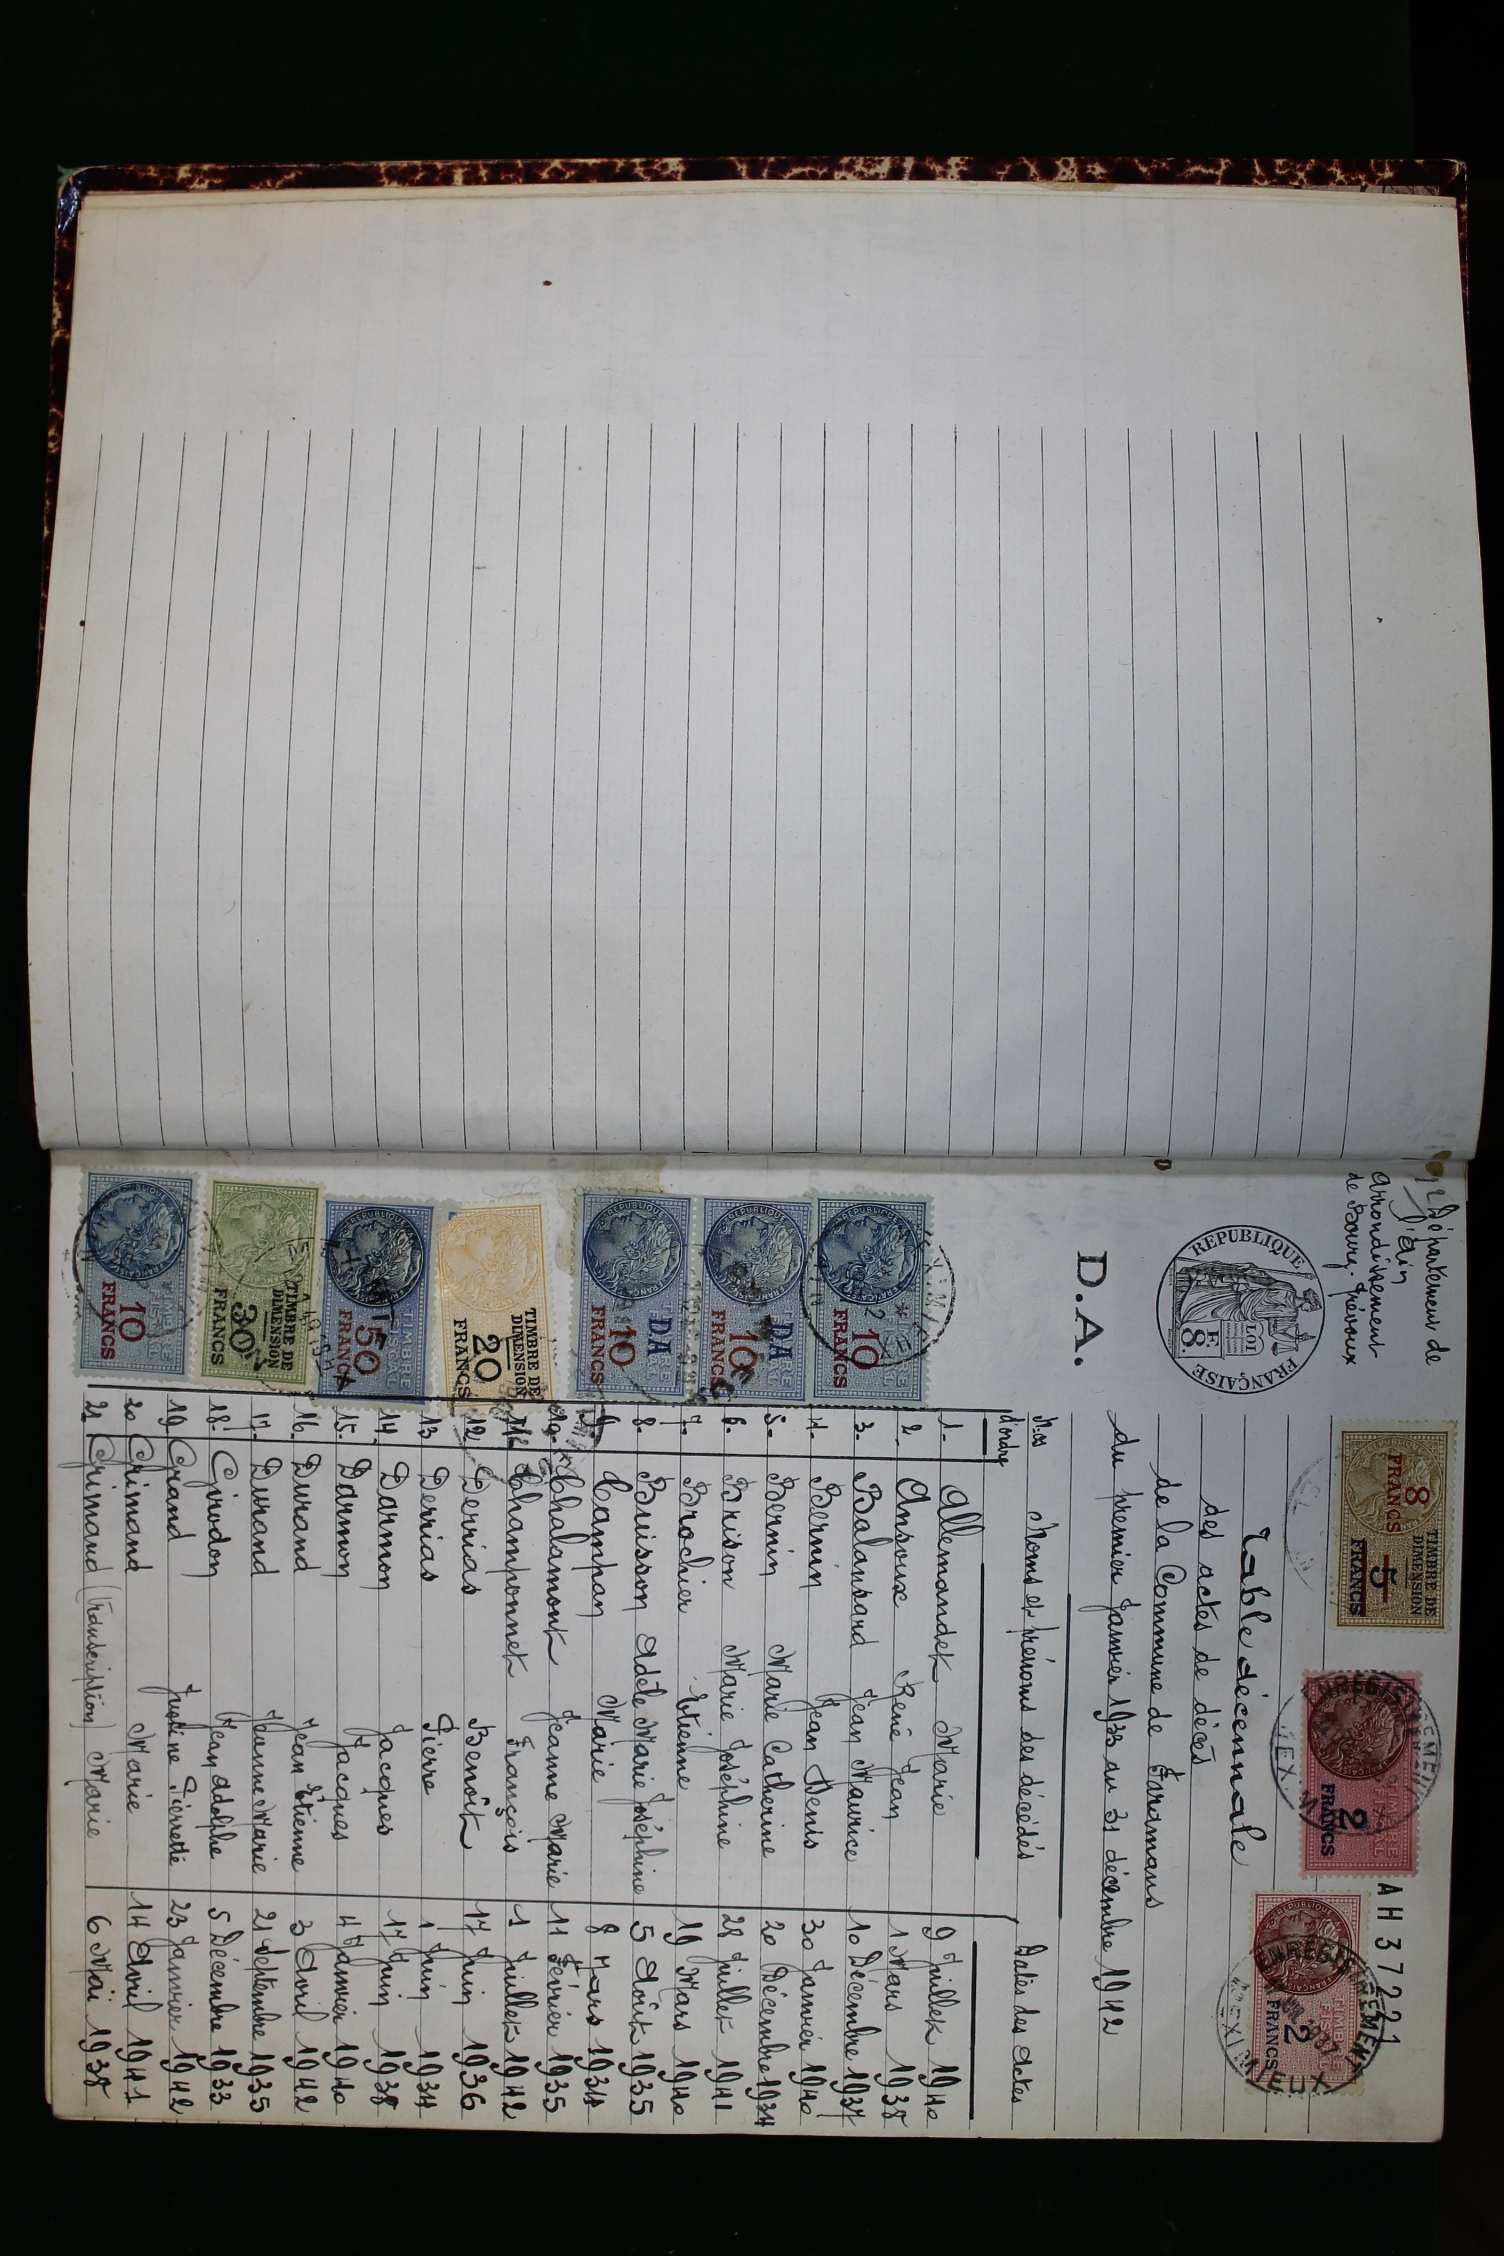 Département de
l'Ain
Arrondissement
de Bourg-Trévoux
REPUBLIQUE FRANÇAISE
LOI
8 F.
D.A.
TIMBRE DE
DIMENSION
8
FRANCS
5
FRANCS
ENREGISTREMENT
MEXIMIEUX
TIMBRE
FISCAL
2
FRANCS
AH 37221
ENREGISTREMENT
MEXIMIEUX
TIMBRE
FISCAL
2
FRANCS
Table décennale
des actes de décès
de la Commune de Faramans
du premier Janvier 1933 au 31 décembre 1942
N.os
d'ordre
Noms et prénoms des décédés
Dates des actes
1. Allemandet Marie 9 Juillet 1940
2. Ansoux René Jean 1 Mars 1938
3. Balansard Jean Maurice 10 Décembre 1937
4. Bernin Jean Denis 30 Janvier 1940
5. Bernin Marie Catherine 20 Décembre 1934
6. Brison Marie Joséphine 28 Juillet 1941
7. Brochier Etienne 19 Mars 1940
8. Buisson Adèle Marie Joséphine 5 Août 1935
9. Campan Marie 8 Mars 1934
10. Chalamont Jeanne Marie 11 Février 1935
11. Champonnet François 1 Juillet 1942
12. Derrias Benoît 17 Juin 1936
13 Derrias Pierre 1 Juin 1934
14. Darmon Jacques 17 Juin 1938
15. Darmon Jacques 4 Janvier 1940
16. Durand Jean Etienne 3 Avril 1942
17. Durand Jeanne Marie 21 Septembre 1935
18. Girodon Jean Adolphe 5 Décembre 1933
19. Grand Justine Pierrette 23 Janvier 1942
20 Grimand Marie 14 Avril 1941
21. Grimand (transcription) Marie 6 Maï 1938
TIMBRE
FISCAL
10
FRANCS
DA
10
FRANCS
DA
10
FRANCS
TIMBRE DE
DIMENSION
20
FRANCS
TIMBRE
FISCAL
50
FRANCS
TIMBRE DE
DIMENSION
30
FRANCS
10
FRANCS